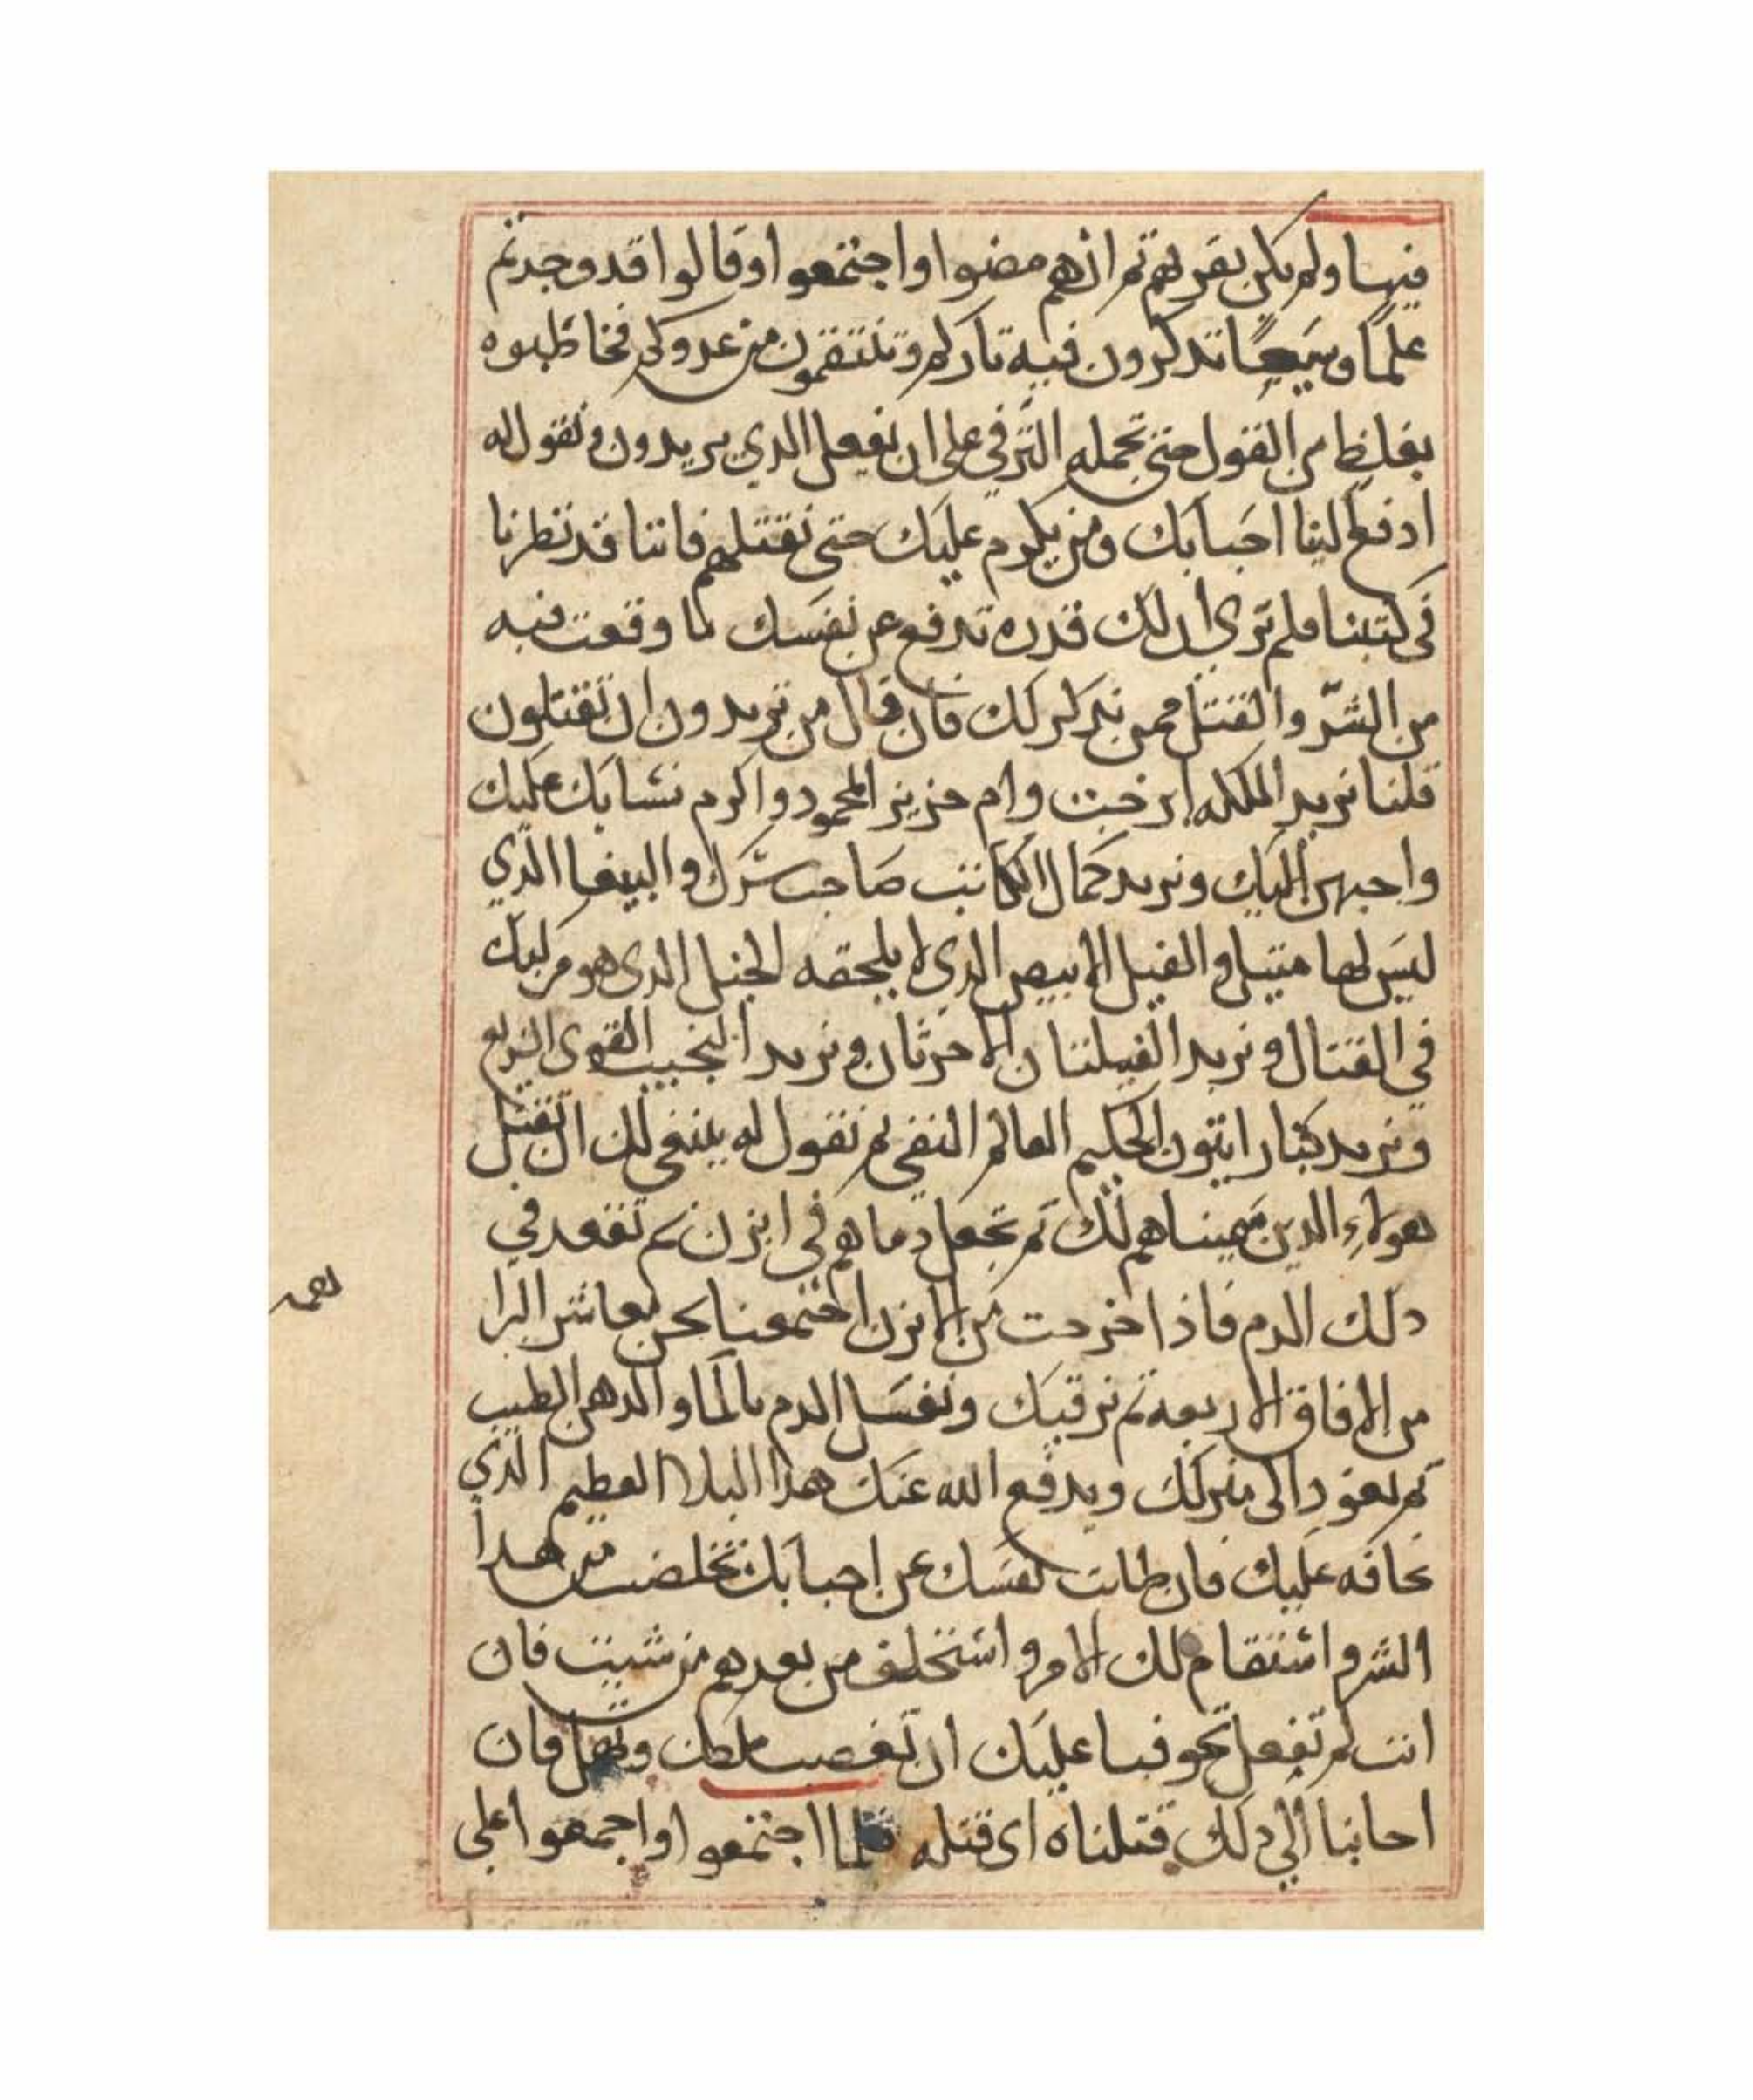 فيها ولم يكن يقربهم ثم انهم مضوا واجتمعوا وقالوا قد وجدتم
علمًا وسَيعًا تدكرون فيه تاركم وتنتقمون من عدوكم فخاطبوه
بغليظ من القول حتى تحمله الترفي على ان يفعل الدي يريدون ونقول له
ادفع لينا احبابك ومن يكرم عليك حتى نقتلهم فاننا قد نظرنا
في كتبنا فلم نري ان لك قدره تدفع عن نفسك لما وقعت فيه
من الشرّ والقتل ممن ندكر لك فان قال من تريدون ان تقتلون
قلنا نريد الملكه ايرخت وام جزير المحمود واكرم نسابك عليك
واحبهن اليك ونريد كمال الكاتب صاحب سرّك والبيغا الدي
ليس لها متيل والفيل الابيض الدي لا يلحقه الخيل الدي هو مركبك
في القتال ونريد الفيلتان الاخرتان ونريد النجيب القوي السريع
ونريد كبار ايتون الحكيم العالم النقي ثم نقول له ينبغي لك ان تقتل
هولاءِ الدين سميناهم لك ثم تجعل دماهم في ابزن ثم تقعد في
دلك الدم فاذا خرجت من الابزن اجتمعنا نحن معاشر البرا
من الافاق الاربعة ثم نرقيك ونغسل الدم بالما والدهن الطيب
ثم تعود الى منزلك ويدفع الله عنك هدا البلا العظيم الدي
نخافه عليك فان طابت نفسك عن احبابك تخلصت من هدا
الشر واستقام لك الامر واستخلف من بعدهم من شيت فان
انت لم تفعل تخوفنا عليك ان تغصب ملكك وتهل فان
اجابنا الي دلك قتلناه اي قتله فلما اجتمعوا واجمعوا على